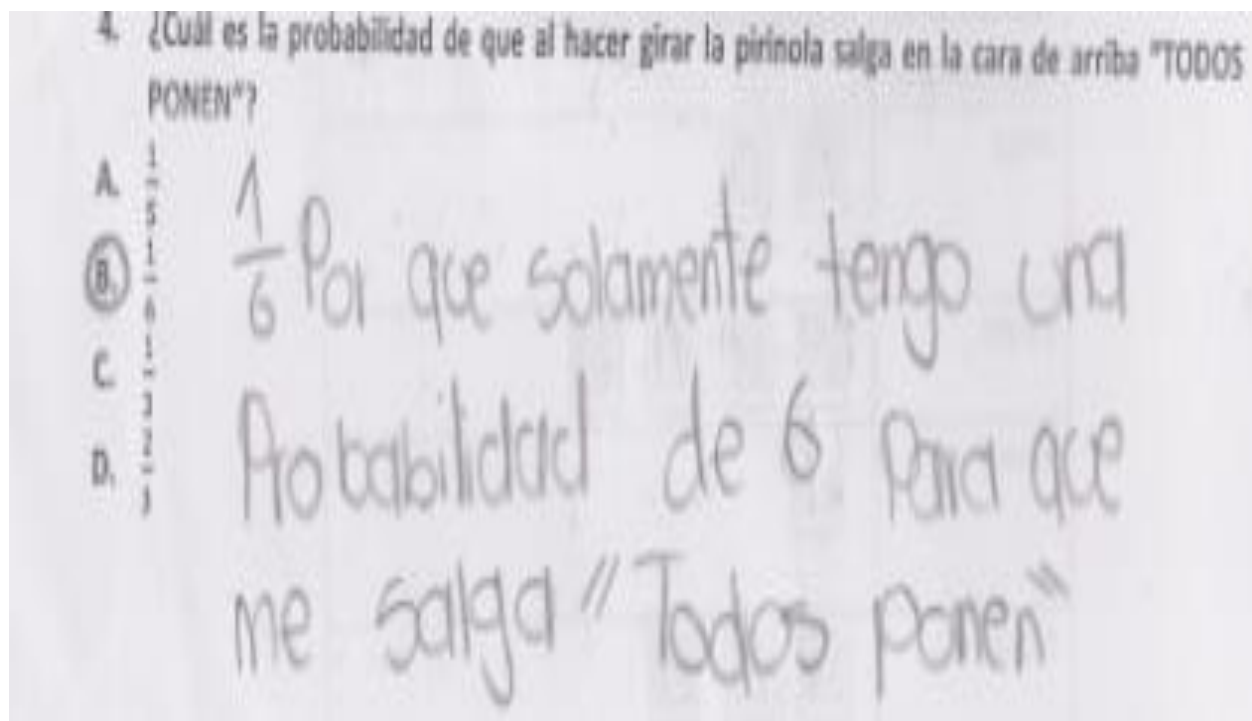 4. ¿Cuál es la probabilidad de que al hacer girar la pirinola salga en la cara de arriba "TODOS
PONEN"?
A.
B.
C.
D.
1/6 Por que solamente tengo una
Probabilidad de 6 Para que
me salga "Todos ponen"